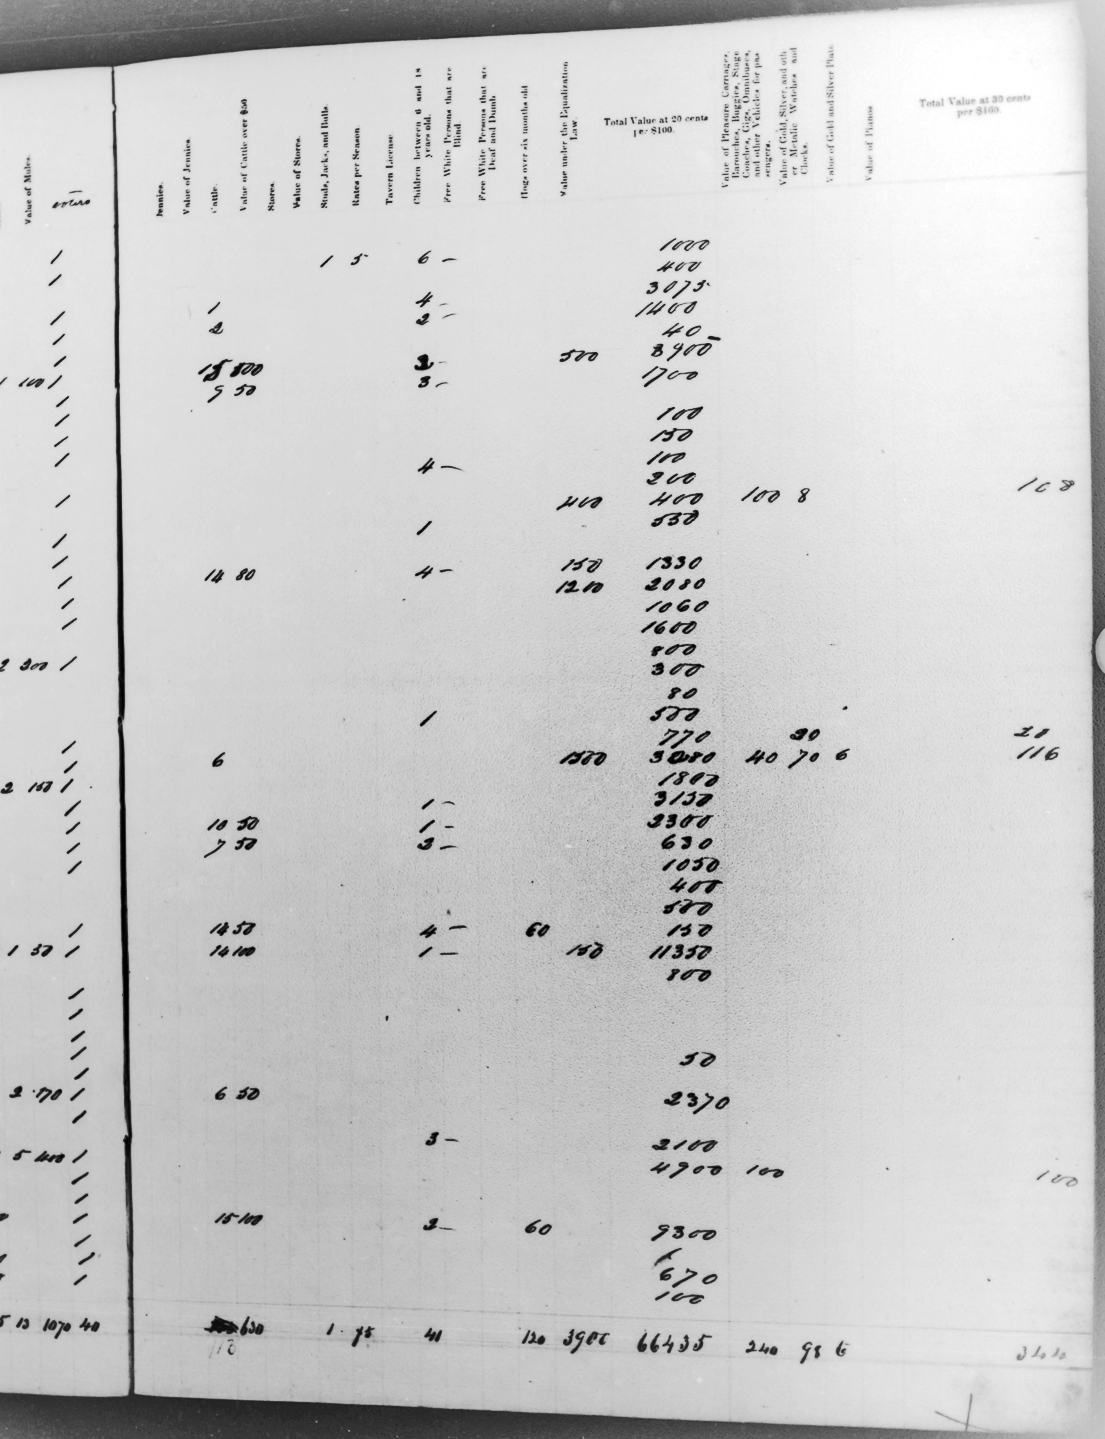 Value of Mules.
voters
Jennies.
Value of Jennies.
Cattle.
Value of Cattle over $50
Stores.
Value of Stores.
Studs, Jacks, and Bulls.
Rates per Season.
Tavern License.
Children between 6 and 18 years old.
Free White Persons that are Blind
Free White Persons that are Deaf and Dumb.
Hogs over six months old
Value under the Equalization Law.
Total Value at 20 cents per $100.
Value of Pleasure Carriages, Barouches, Buggies, Stage Coaches, Gigs, Omnibuses, and other Vehicles for passengers.
Value of Gold, Silver, and other Metalic Watches and Clocks.
Value of Gold and Silver Plate
Value of Pianos
Total Value at 30 cents per $100.
1000
/ 1 5 6 – 400
/ 3075
1 4 – 1400
/ 2 2 – 40
/ 500 8900
/ 15 800 – 1700
1 100 / 9 50 3 –
/ 100
/ 150
/ 100
/ 4 – 200
/ 400 400 100 8 108
1 530
/
/ 150 1330
/ 14 80 4 – 1200 2080
/ 1060
/ 1600
800
2 200 / 300
80
1 500
/ 770 20 20
/ 6 1500 3080 40 70 6 116
2 150 / 1800
/ 1 – 3150
/ 10 50 1 – 2300
/ 7 50 2 – 630
/ 1050
400
500
/ 14 50 4 – 60 150
1 50 / 14 100 1 – 150 11350
800
/
/
/
/ 50
/
2 170 / 6 50 2370
/
3 – 2100
5 400 / 4900 100 100
/
/
/ 15 100 2 – 60 9300
/
/ 670
/ 100
5 13 1070 40 630 1 41 120 3900 66435 240 98 6 344
113